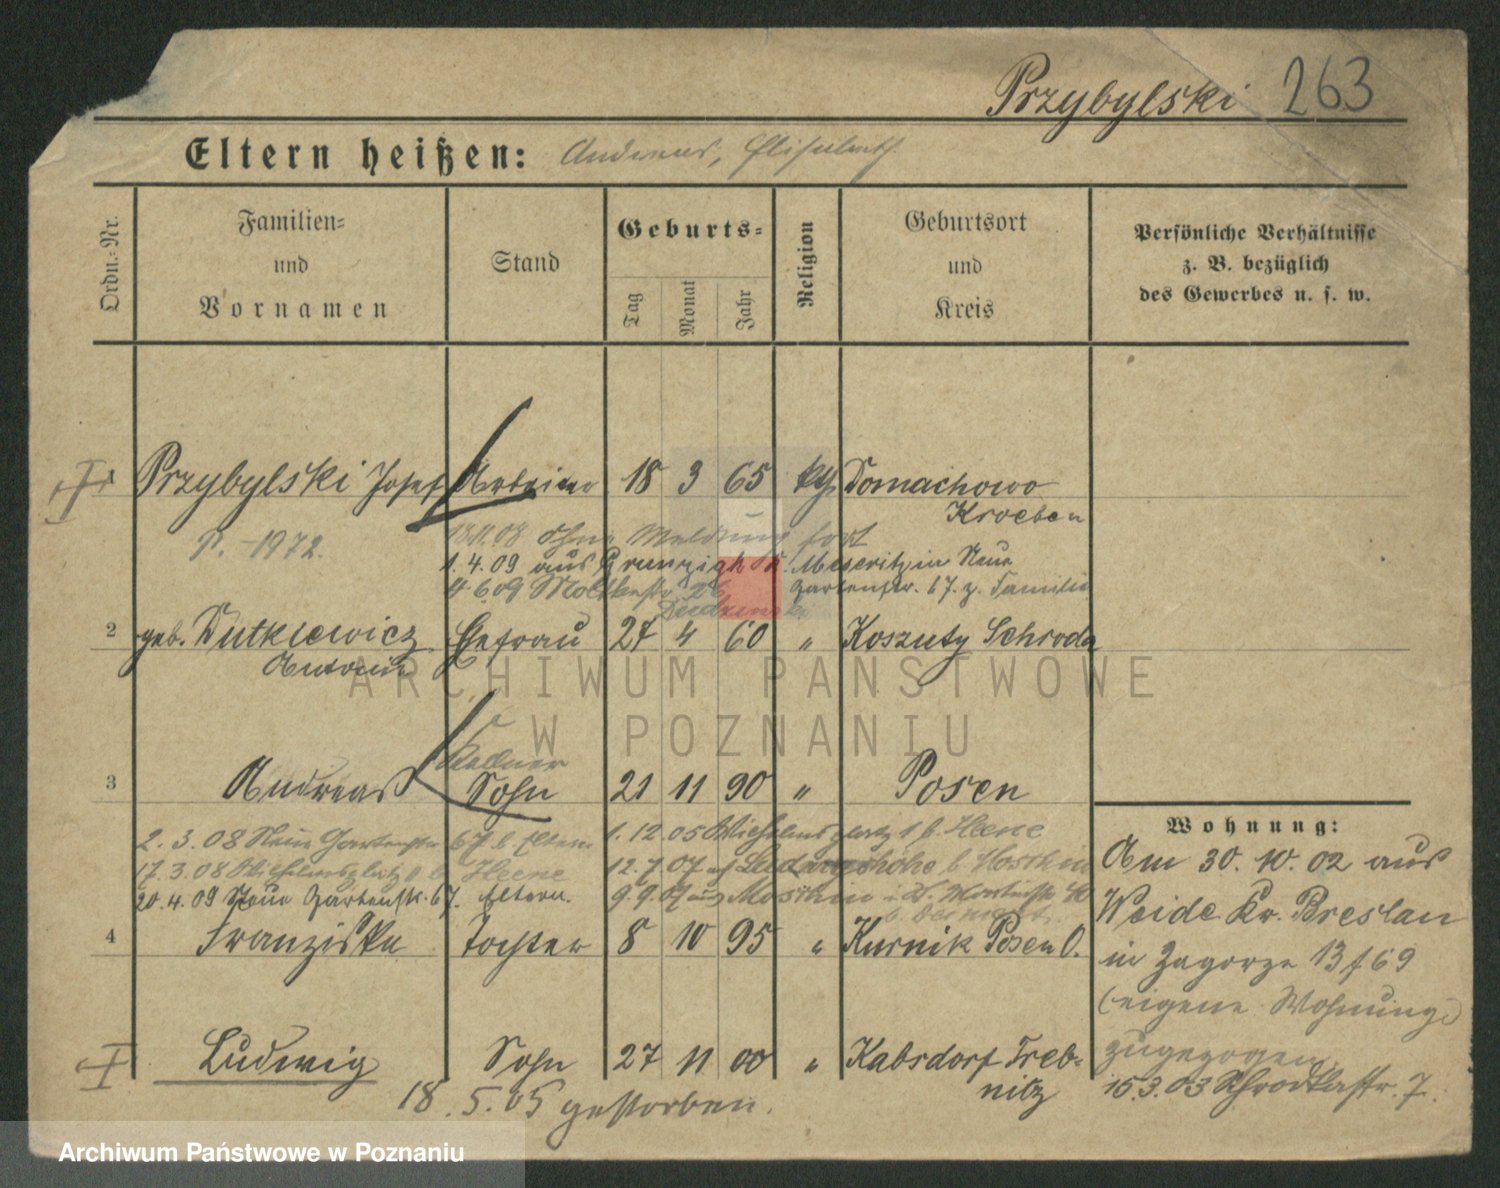 Przybylski 263
Eltern heißen: Andreas, Elisabeth
Ordn.-Nr.
Familien-
und
Vornamen
Stand
Geburts-
Tag
Monat
Jahr
Religion
Geburtsort
und
Kreis
Persönliche Verhältnisse
z. B. bezüglich
des Gewerbes u. s. w.
1 Przybylski Josef Arbeiter 18 3 65 kth Domachowo
Kroeben
P. - 1972.
18.11.08 Ohne Meldung fort
1.4.09 aus Meseritz in Neue
4.6.09 Moltkestr. 26 Gartenstr. 67. z. Familie
2 geb. Dutkiewicz Ehefrau 24 4 60 " Koszuty Schroda
Antonie
Kellner
3 Andreas Sohn 21 11 90 " Posen
2.3.08 Neue Gartenstr. 67 b Eltern 1.12.05 Wilhelmsplatz 1 b. Heene
17.3.08 Wilhelmsplatz b Heene 12.7.07 Ludwigshöhe b
20.4.09 Neue Gartenstr. 67. Eltern. 9.9.07 aus Moschin
4 Franziska Tochter 8 10 95 " Kurnik Posen O.
Ludwig Sohn 27 11 00 " Kabsdorf Treb-
nitz
18.5.05 gestorben.
Wohnung:
Am 30.10.02 aus
Weide Kr. Breslau
in Zagorze 13 f 69
(eigene Wohnung)
zugezogen.
15.3.03 Schrodkastr. 7.
ARCHIWUM PAŃSTWOWE
W POZNANIU
Archiwum Państwowe w Poznaniu